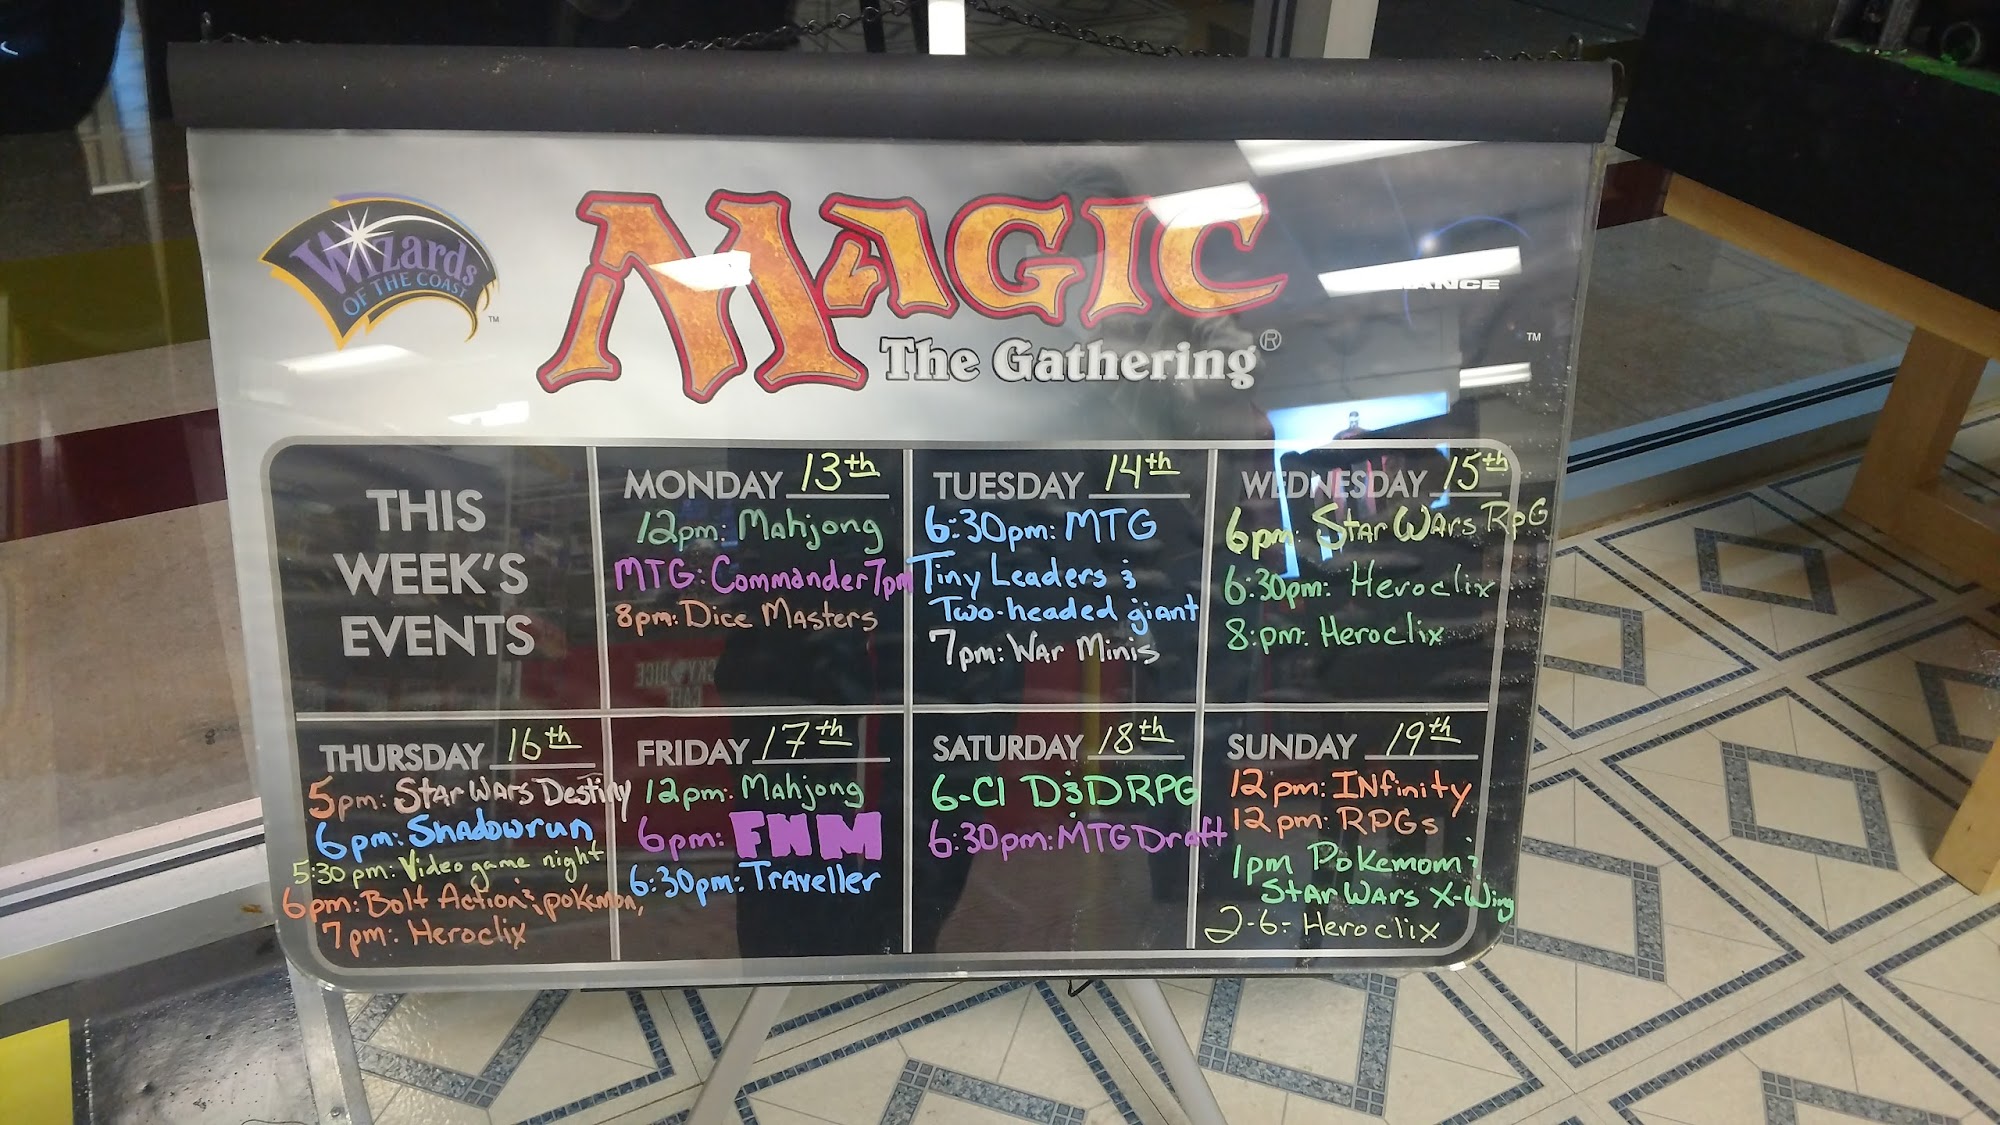 Wizards
OF THE COAST
TM
MAGIC
The Gathering®
ANCE
TM
THIS
WEEK'S
EVENTS
MONDAY 13th
12pm: Mahjong
MTG: Commander 7pm
8pm: Dice Masters
TUESDAY 14th
6:30pm: MTG
Tiny Leaders &
Two-headed giant
7pm: War Minis
WEDNESDAY 15th
6pm: Star Wars RpG
6:30pm: Heroclix
8:pm: Heroclix
THURSDAY 16th
5pm: Star Wars Destiny
6pm: Shadowrun
5:30 pm: Video game night
6pm: Bolt Action &, pokemon,
7pm: Heroclix
FRIDAY 17th
12pm: Mahjong
6pm: FNM
6:30pm: Traveller
SATURDAY 18th
6-Cl D&D RPG
6:30pm: MTG Draft
SUNDAY 19th
12pm: INfinity
12pm: RPGs
1pm Pokemom &
Star Wars X-Wing
2-6: Heroclix